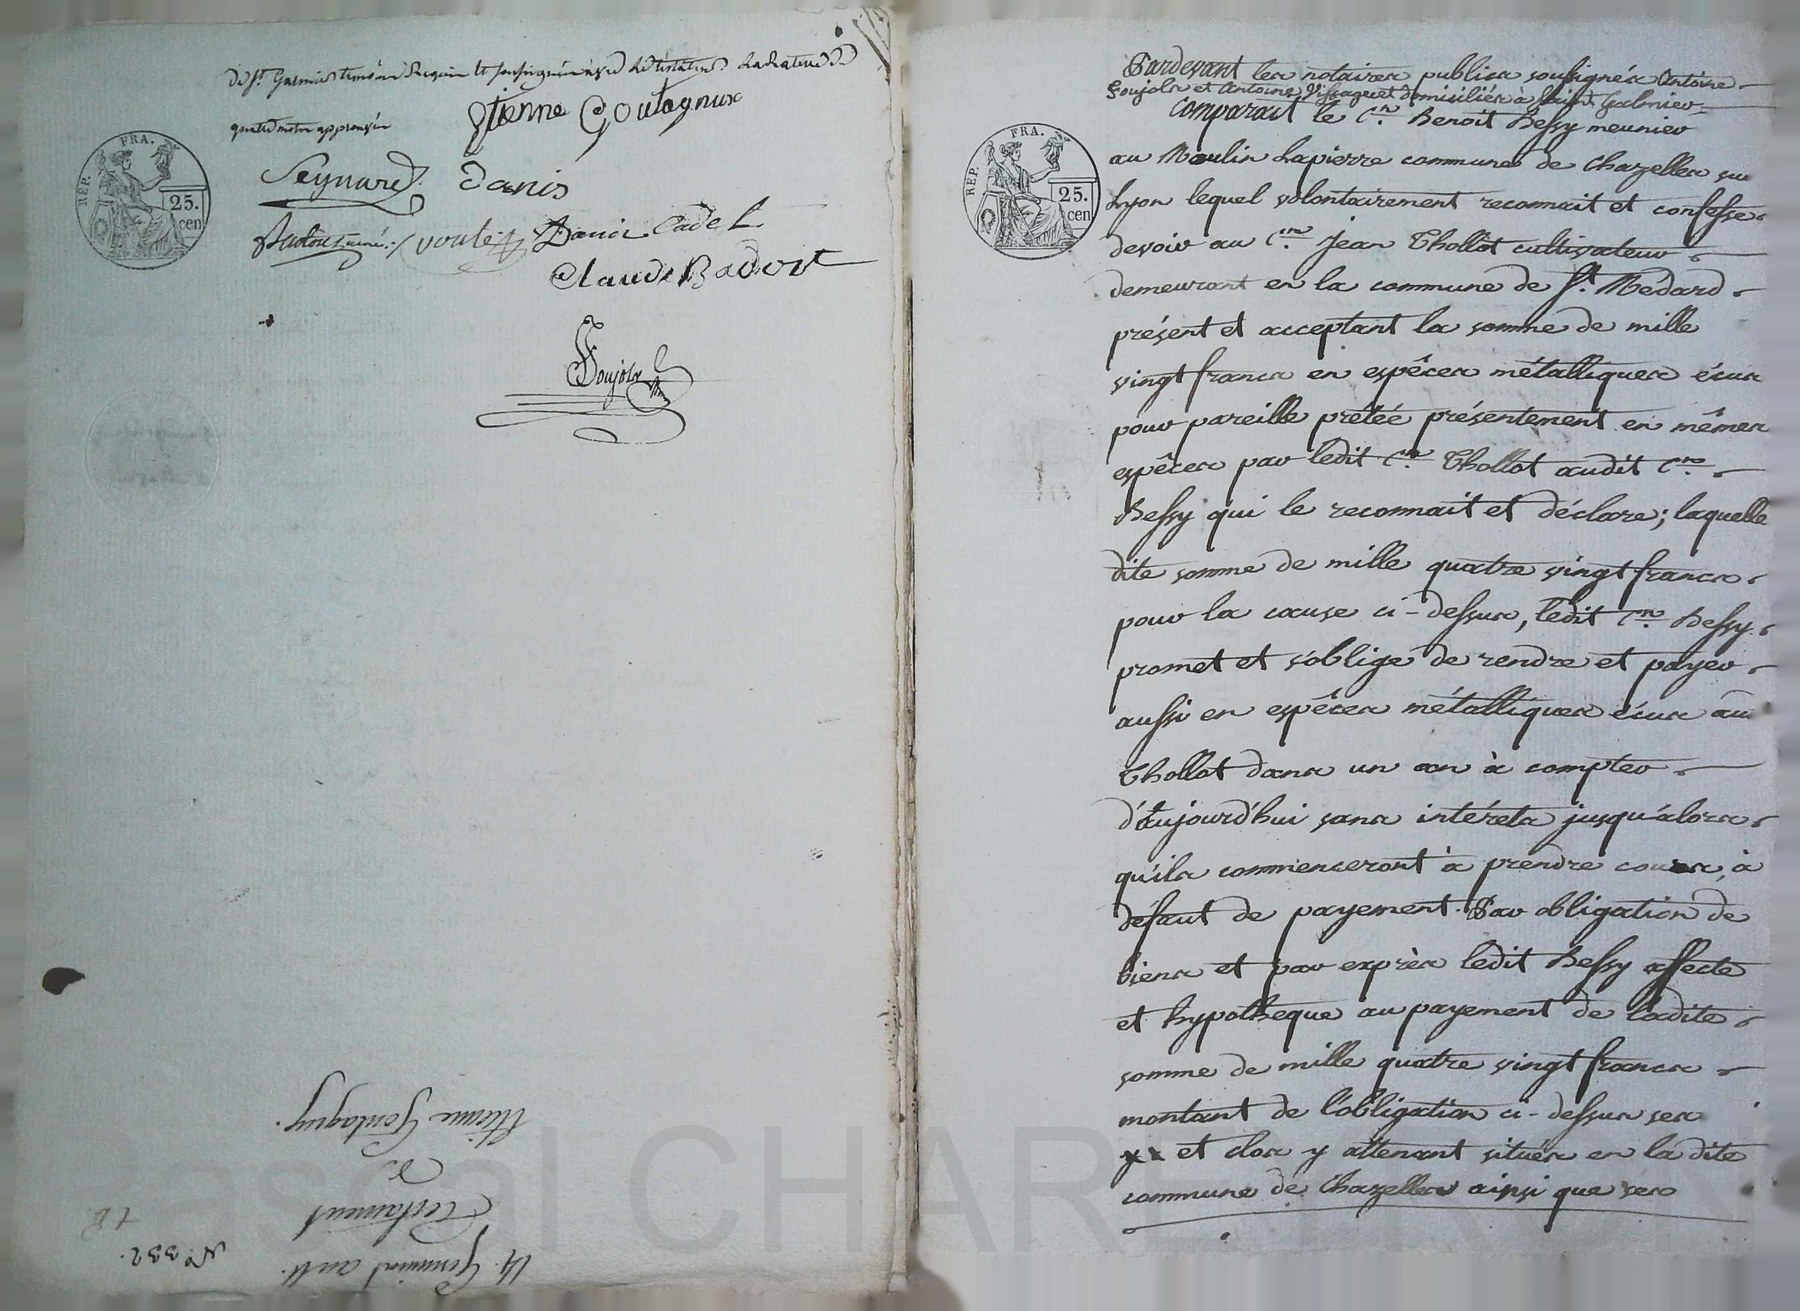 de St. Galmier témoins requis et soussignés avec le testateur
quatre mots approuvés
Etienne Goutagnux
REP. FRA.
25.
cen
Peynard Danis
Cadet
Claude Badort
Soujols
Etienne Goutagny.
de
Testament
14. Germinal an
N.° 332.
Pardevant les notaires publics soussignés Antoine
Soujols et Antoine domiciliés à Saint Galmier
REP. FRA.
25.
cen
Comparait le C.en Benoit Bessy meunier
au Moulin Lapierre commune de Chazelles sur
Lyon lequel volontairement reconnait et confesse
devoir au C.en Jean Thollot cultivateur
demeurant en la commune de St. Medard
présent et acceptant la somme de mille
vingt francs en espêces métalliques écus
pour pareille prêtée présentement en mêmes
espêces par ledit C.en Thollot audit C.en
Bessy qui le reconnait et déclare; laquelle
dite somme de mille quatre vingt francs
pour la cause ci-dessus, ledit C.en Bessy
promet et s'oblige de rendre et payer
aussi en espêces métalliques écus au
Thollot dans un an à compter
d'aujourd'hui sans intérets jusqu'alors
qu'ils commenceront à prendre cours, à
défaut de payement. Par obligation de
biens et par exprès ledit Bessy affecte
et hypotheque au payement de ladite
somme de mille quatre vingt francs
montant de l'obligation ci-dessus ses
et clos y attenant situés en la dite
commune de Chazelles ainsi que ses
Pascal CHAR